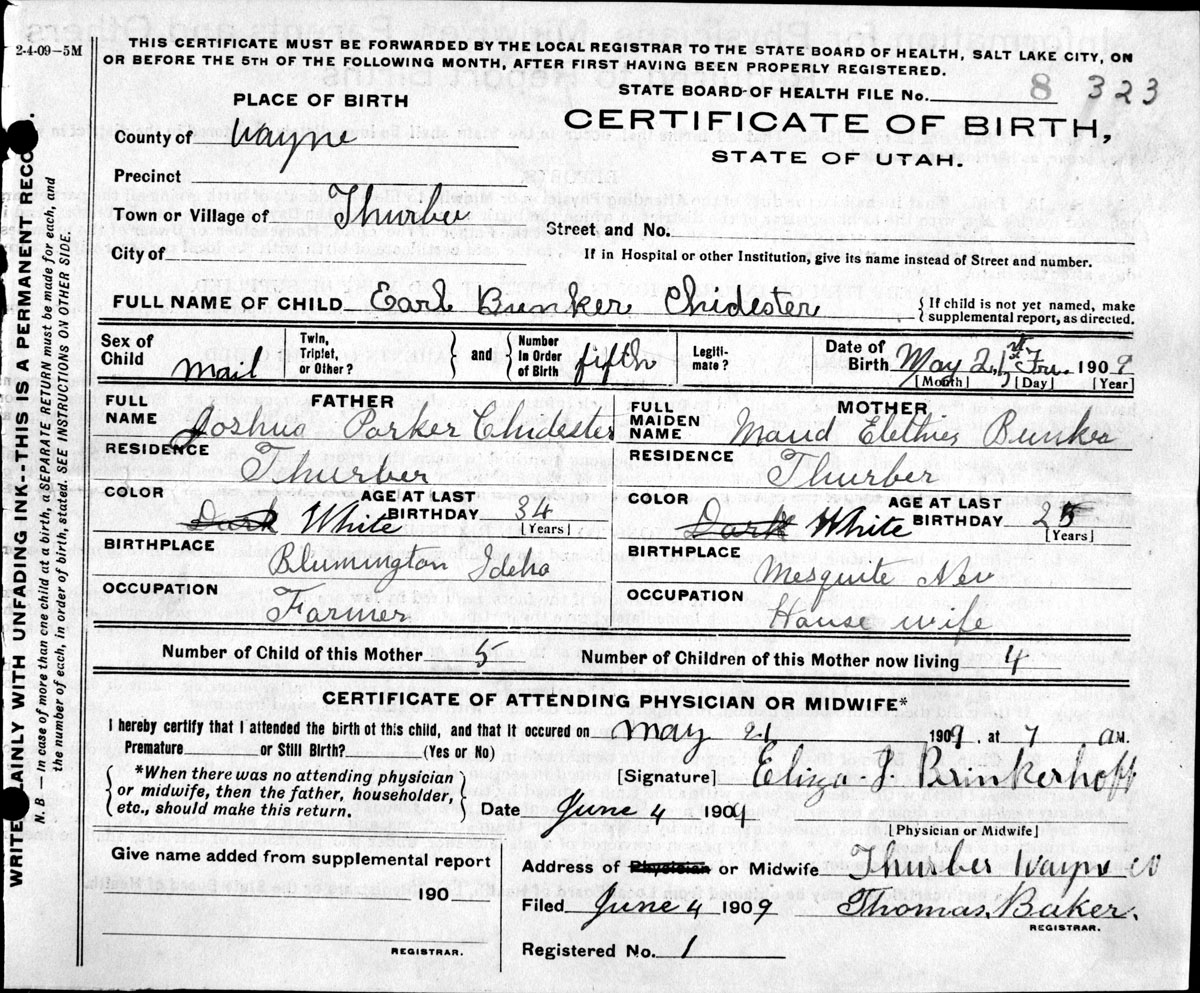 2-4-09-5M
THIS CERTIFICATE MUST BE FORWARDED BY THE LOCAL REGISTRAR TO THE STATE BOARD OF HEALTH, SALT LAKE CITY, ON
OR BEFORE THE 5TH OF THE FOLLOWING MONTH, AFTER FIRST HAVING BEEN PROPERLY REGISTERED.
STATE BOARD OF HEALTH FILE No. 8 323
PLACE OF BIRTH
CERTIFICATE OF BIRTH,
STATE OF UTAH.
County of Wayne
Precinct
Town or Village of Thurber
Street and No.
City of
If in Hospital or other Institution, give its name instead of Street and number.
FULL NAME OF CHILD Earl Bunker Chidester
{ If child is not yet named, make
supplemental report, as directed.
Sex of Child mail
Twin, Triplet, or Other?
and
Number in Order of Birth fifth
Legiti-mate?
Date of Birth May 21st Fri. 1909
[Month] [Day] [Year]
FATHER
FULL NAME Joshua Parker Chidester
RESIDENCE Thurber
COLOR Dark White
AGE AT LAST BIRTHDAY 34
[Years]
BIRTHPLACE Blumington Idaho
OCCUPATION Farmer
MOTHER
FULL MAIDEN NAME Maud Bunker
RESIDENCE Thurber
COLOR Dark White
AGE AT LAST BIRTHDAY 25
[Years]
BIRTHPLACE Mesquite Nev
OCCUPATION House wife
Number of Child of this Mother 5
Number of Children of this Mother now living 4
CERTIFICATE OF ATTENDING PHYSICIAN OR MIDWIFE*
I hereby certify that I attended the birth of this child, and that it occured on May 21 1909, at 7 a M.
Premature or Still Birth? (Yes or No)
*When there was no attending physician
or midwife, then the father, householder,
etc., should make this return.
[Signature] Eliza J. Brinkerhoff
Date June 4 1909
[Physician or Midwife]
Give name added from supplemental report
190
REGISTRAR.
Address of Physician or Midwife Thurber Wayne
Filed June 4 1909 Thomas Baker.
REGISTRAR.
Registered No. 1
WRITE PLAINLY WITH UNFADING INK--THIS IS A PERMANENT RECORD.
N. B.—In case of more than one child at a birth, a SEPARATE RETURN must be made for each, and
the number of each, in order of birth, stated. SEE INSTRUCTIONS ON OTHER SIDE.